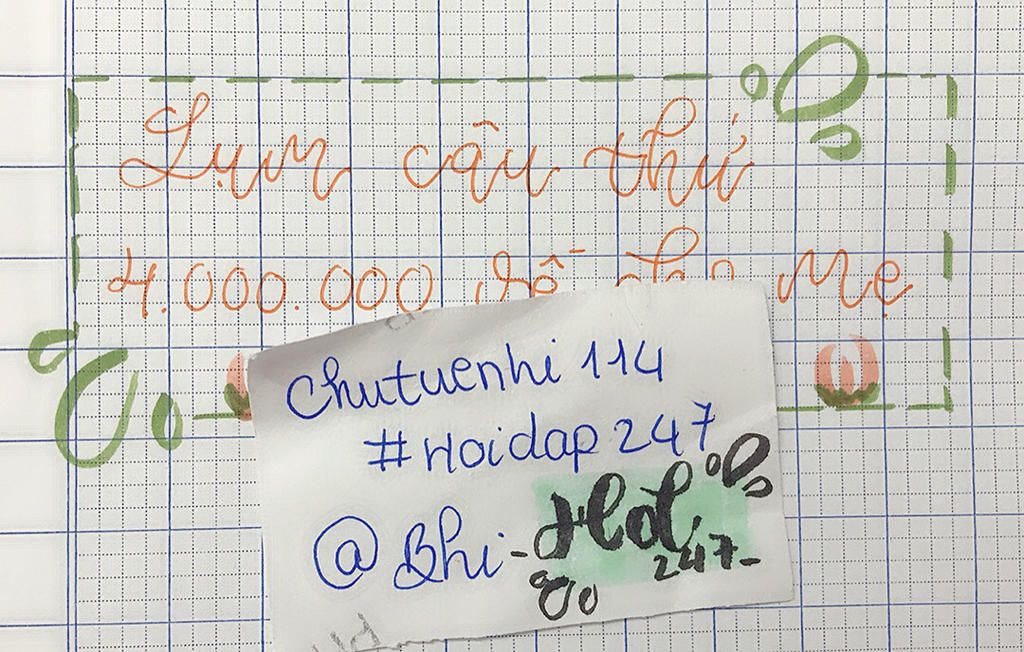 Lụm câu thứ
4.000.000 rồ cho Mẹ
chutuenhi 114
#Hoidap 247
@Bhi - Hd
247-